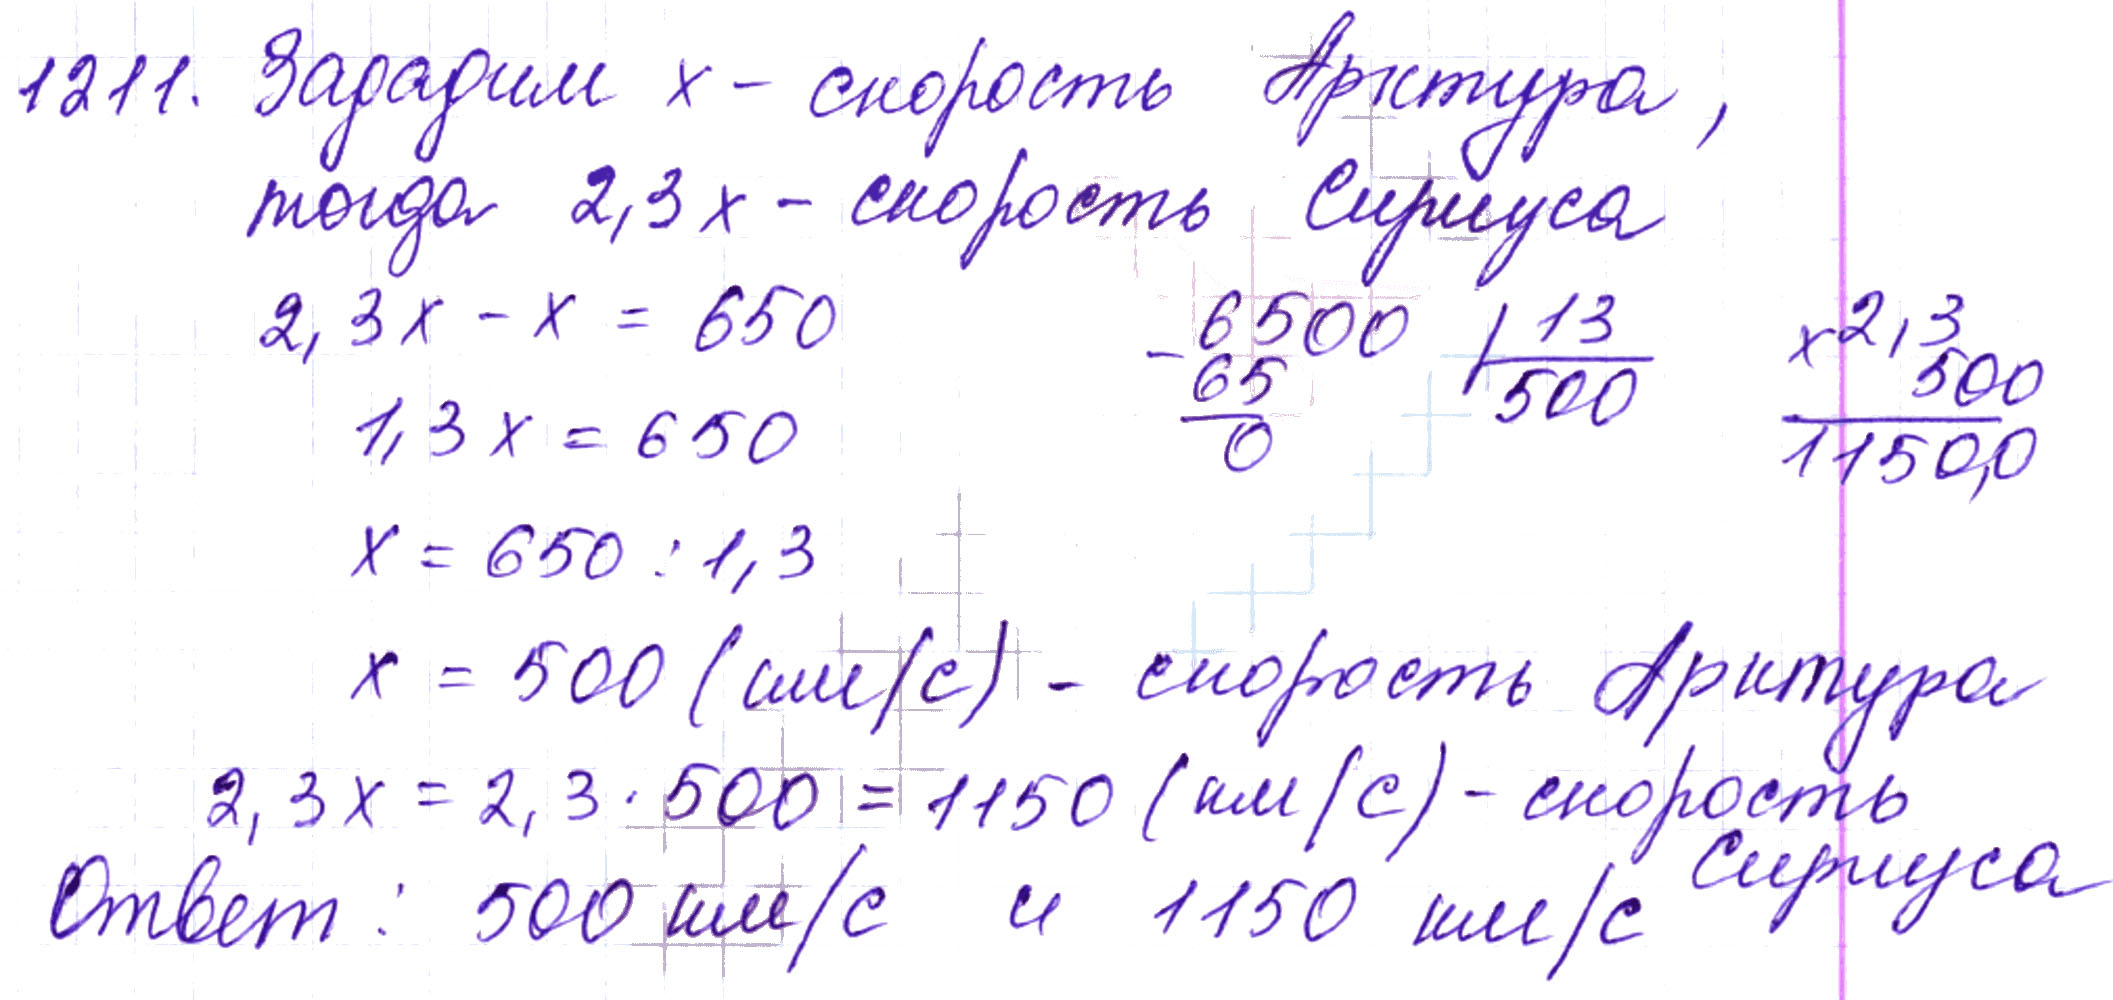 1211. Зададим x - скорость Арктура,
тогда 2,3x - скорость Сириуса
2,3x - x = 650
1,3x = 650
x = 650 : 1,3
x = 500 (км/с) - скорость Арктура
2,3x = 2,3 · 500 = 1150 (км/с) - скорость
Сириуса
Ответ: 500 км/с и 1150 км/с
- 6500 | 13
65 500
0
x 2,3
500
1150,0